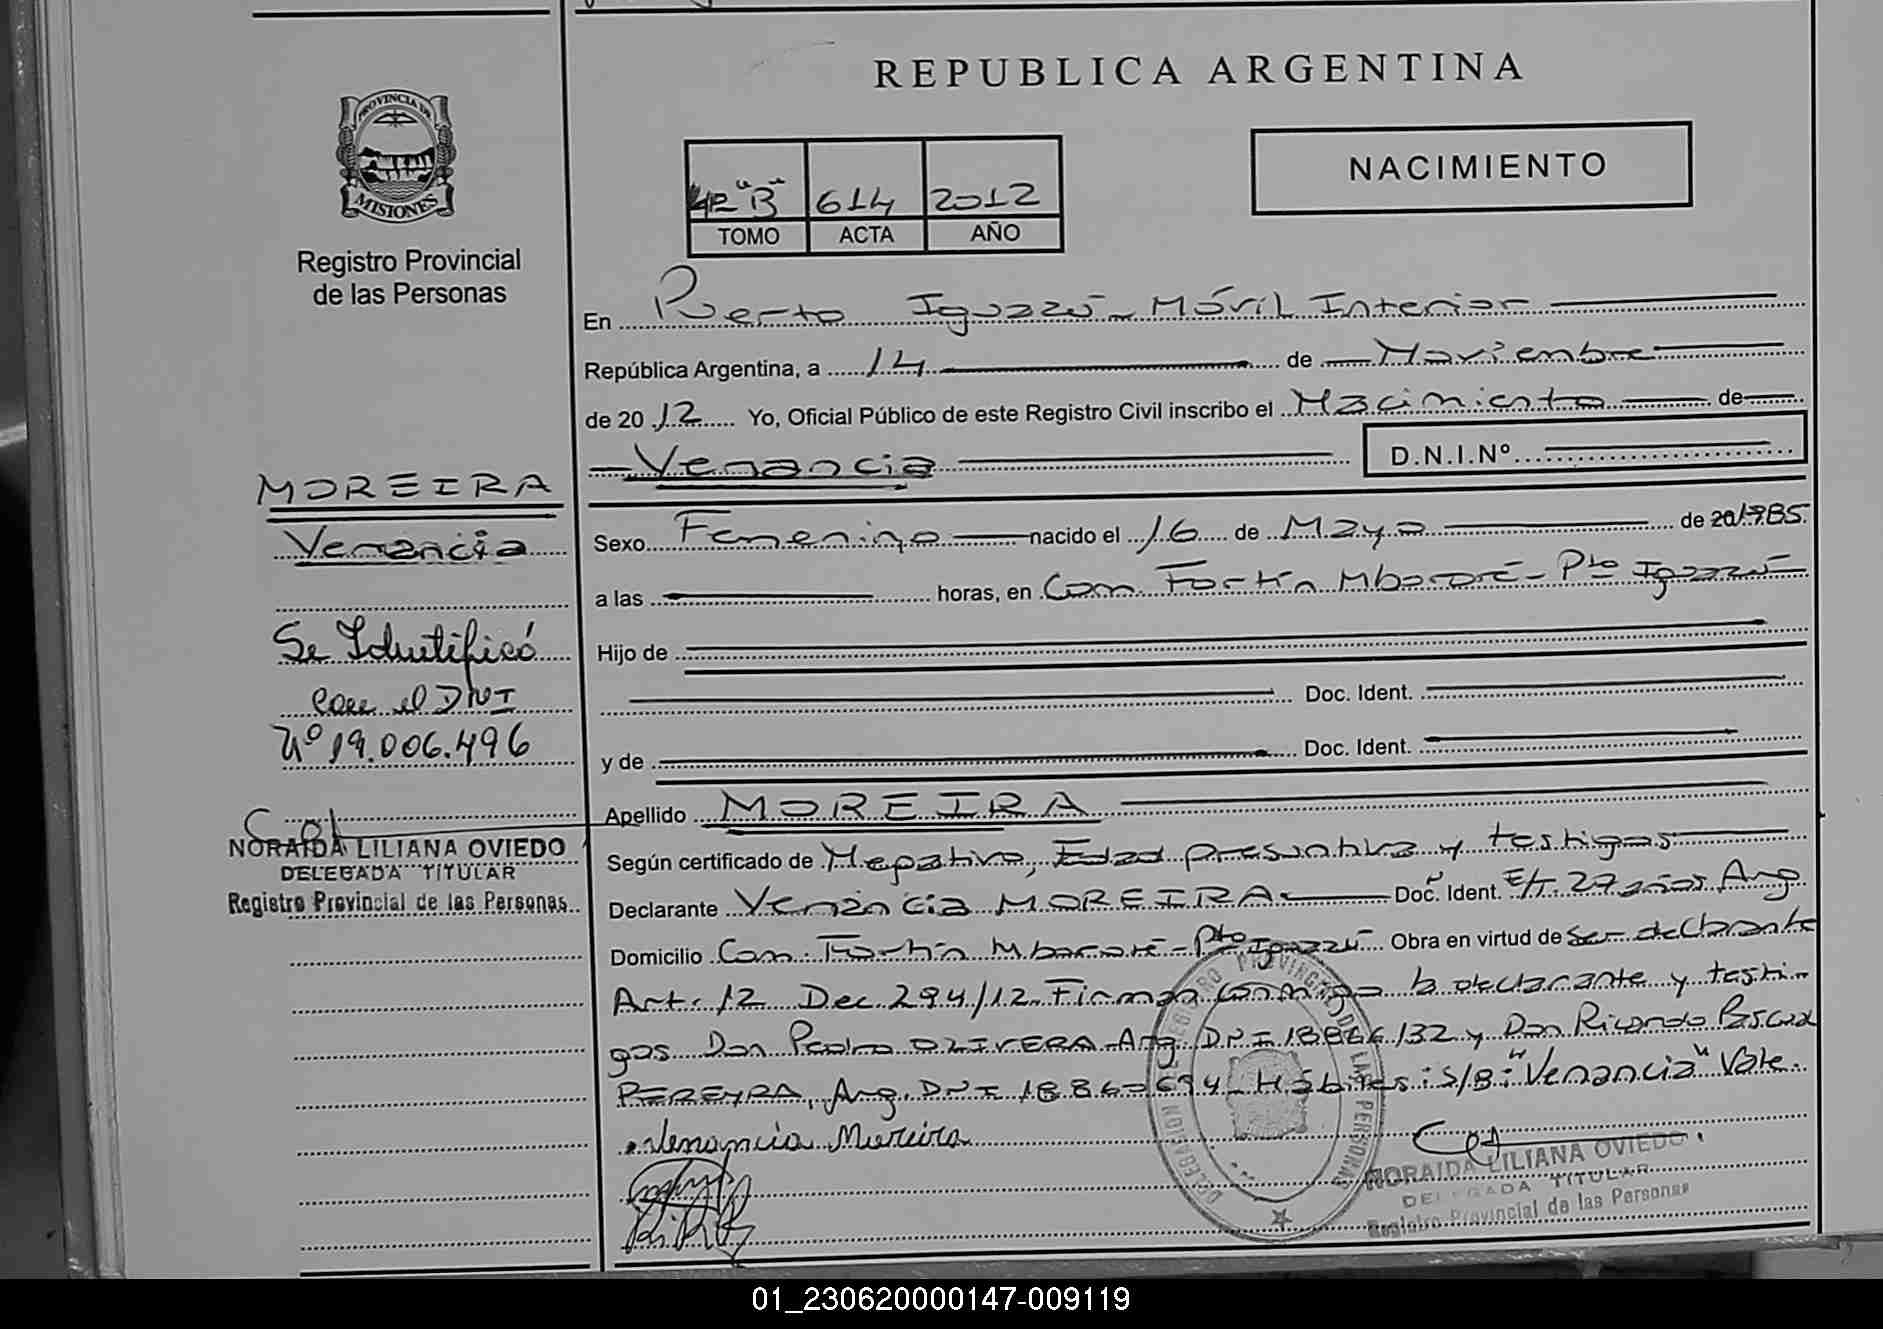 REPUBLICA ARGENTINA
PROVINCIA DE
MISIONES
Registro Provincial
de las Personas
NACIMIENTO
"B" 614 2012
TOMO ACTA AÑO
En Puerto Iguazú - Móvil Interior
República Argentina, a 14 de Noviembre
de 2012 Yo, Oficial Público de este Registro Civil inscribo el Nacimiento de
Venancia D.N.I.Nº
MOREIRA
Venancia
Se Identificó
con el DNI
Nº 19.006.496
NORAIDA LILIANA OVIEDO
DELEGADA TITULAR
Registro Provincial de las Personas
Sexo Femenino nacido el 16 de Mayo de 1985.
a las horas, en Com. Fortín Mbororé - Pto Iguazú
Hijo de
Doc. Ident.
y de Doc. Ident.
Apellido MOREIRA
Según certificado de Negativo, Edad presuntiva y testigos
Declarante Venancia MOREIRA Doc. Ident. E/T. 27 años Arg
Domicilio Com. Fortín Mbororé - Pto Iguazú Obra en virtud de Ser declarante
Art. 12 Dec. 294/12. Firman conmigo la declarante y testi-
gos Don Pedro OLIVERA Arg. DNI 18866132 y Don Ricardo
PEREYRA, Arg. DNI - Hábiles: S/B: "Venancia" Vale.
Venancia Moreira
NORAIDA LILIANA OVIEDO
DELEGADA TITULAR
Registro Provincial de las Personas
01_230620000147-009119